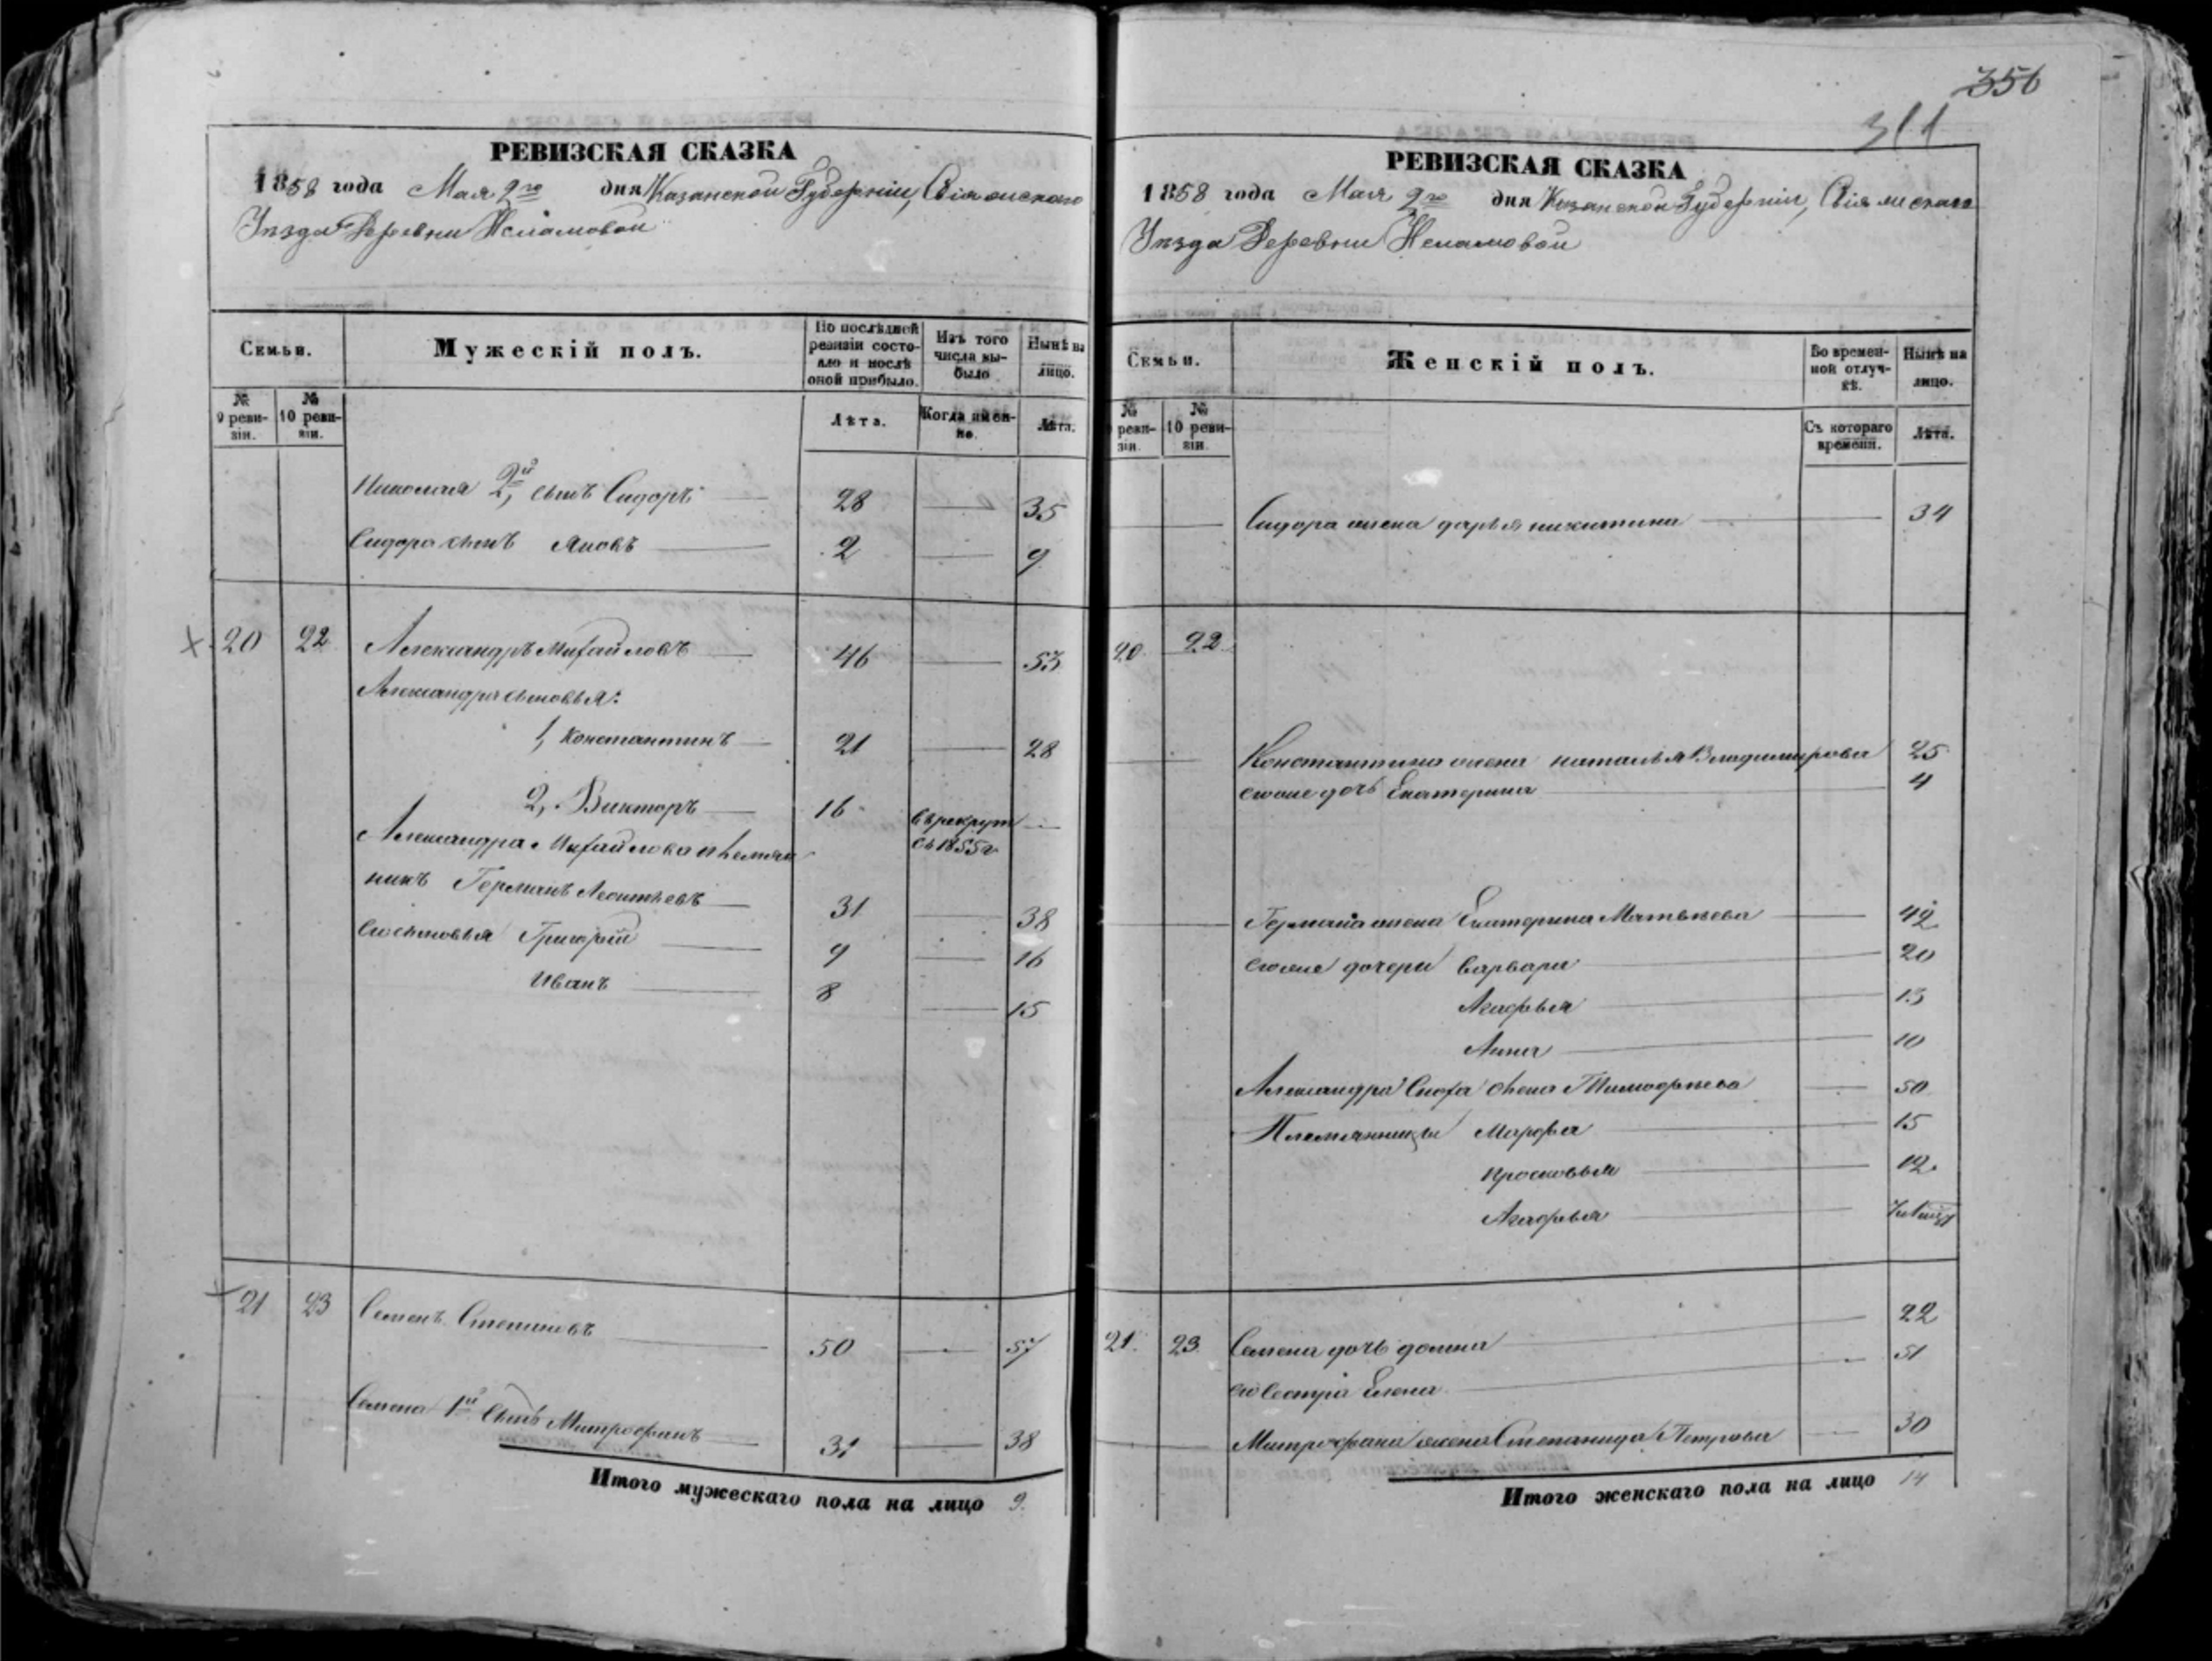 356
311
РЕВИЗСКАЯ СКАЗКА
1858 года Мая 2го дня Казанской Губернии, Свіяжскаго
Уѣзда Деревни
Семьи.
Мужескій полъ.
По послѣдней ревизіи состояло и послѣ оной прибыло.
Изъ того числа выбыло
Нынѣ на лицо.
№ 9 ревизіи.
№ 10 ревизіи.
Лѣта.
Когда именно.
Лѣта.
Николая 2й, сынъ Сидоръ 28 — 35
Сидора сынъ Яковъ 2 — 9
20 22 Александръ Михайловъ 46 — 53
Александра сыновья:
1, Константинъ 21 — 28
2, Викторъ 16 въ рекрут —
съ 1855г
Александра Михайлова племян
никъ Германъ Леонтьевъ 31 — 38
Его сыновья Григорій 9 — 16
Иванъ 8 — 15
21 23 Семенъ Степановъ 50 — 57
Семена 1й сынъ Митрофанъ 31 — 38
Итого мужескаго пола на лицо 9.
РЕВИЗСКАЯ СКАЗКА
1858 года Мая 2го дня Казанской Губернии, Свіяжскаго
Уѣзда Деревни
Семьи.
Женскій полъ.
Во временной отлучкѣ.
Нынѣ на лицо.
№ ревизіи.
№ 10 ревизіи.
Съ котораго времени.
Лѣта.
Сидора жена дарья никитина — 34
20 22
Константина жена наталья Владимирова 25
его же дочь Екатерина 4
Германа жена Екатерина Матвѣева — 42
его же дочери варвара 20
Агафья 13
Анна 10
Александра Сноха Ѳеопа Тимофѣева — 50
Племянницы Марфа 15
просковья 12
Агафья
21 23 Семена дочь домна 22
его Сестра Елена — 51
Митрофана жена Степанида Петрова — 30
Итого женскаго пола на лицо 14